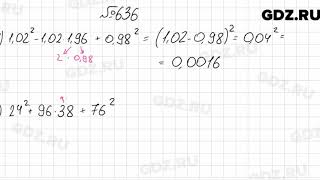 GDZ.RU
№636
) 1,02² - 1,02·1,96 + 0,98² = (1,02-0,98)² = 0,04² =
2 · 0,98
= 0,0016
) 24² + 96·38 + 76²
GDZ.RU